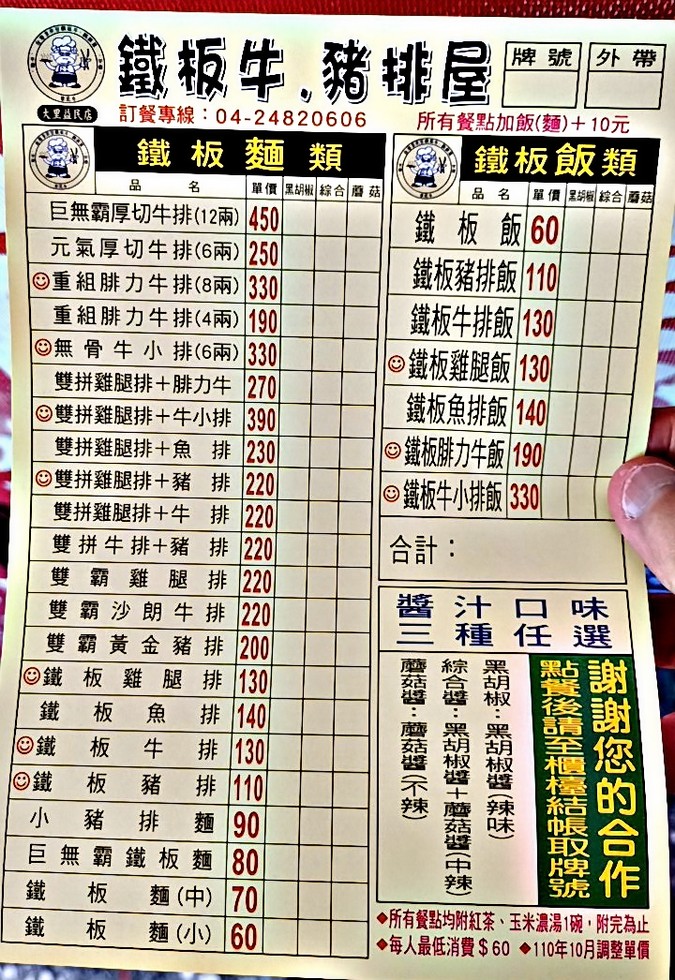 鐵板牛.豬排屋
牌號
外帶
大里益民店
訂餐專線：04-24820606
所有餐點加飯(麵)＋10元
鐵板麵類
品名 單價 黑胡椒 綜合 蘑菇
巨無霸厚切牛排(12兩) 450
元氣厚切牛排(6兩) 250
重組腓力牛排(8兩) 330
重組腓力牛排(4兩) 190
無骨牛小排(6兩) 330
雙拼雞腿排＋腓力牛 270
雙拼雞腿排＋牛小排 390
雙拼雞腿排＋魚排 230
雙拼雞腿排＋豬排 220
雙拼雞腿排＋牛排 220
雙拼牛排＋豬排 220
雙霸雞腿排 220
雙霸沙朗牛排 220
雙霸黃金豬排 200
鐵板雞腿排 130
鐵板魚排 140
鐵板牛排 130
鐵板豬排 110
小豬排麵 90
巨無霸鐵板麵 80
鐵板麵(中) 70
鐵板麵(小) 60
鐵板飯類
品名 單價 黑胡椒 綜合 蘑菇
鐵板飯 60
鐵板豬排飯 110
鐵板牛排飯 130
鐵板雞腿飯 130
鐵板魚排飯 140
鐵板腓力牛飯 190
鐵板牛小排飯 330
合計：
醬汁口味
三種任選
謝謝您的合作
點餐後請至櫃檯結帳取牌號
黑胡椒：黑胡椒醬(辣味)
綜合醬：黑胡椒醬＋蘑菇醬(中辣)
蘑菇醬：蘑菇醬(不辣)
◆所有餐點均附紅茶、玉米濃湯1碗，附完為止
◆每人最低消費＄60 ◆110年10月調整單價